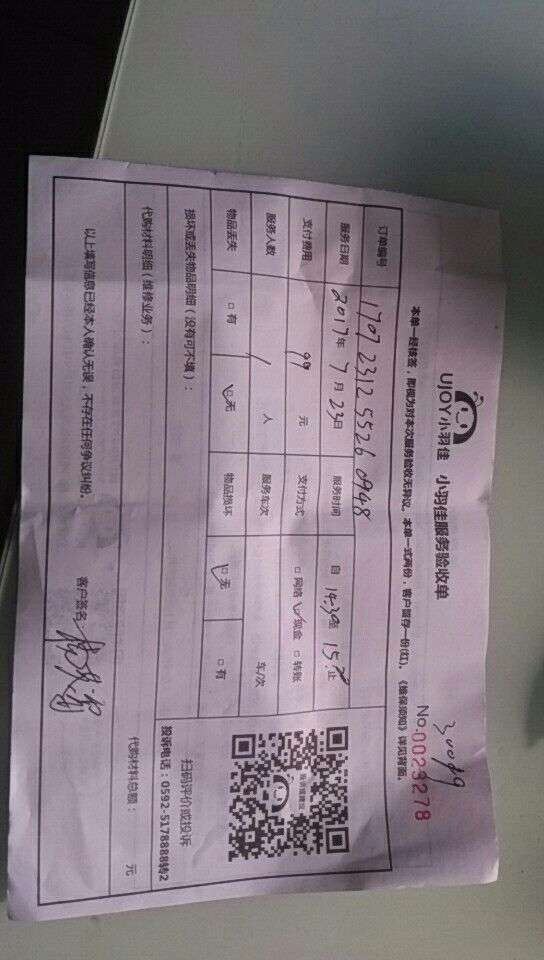 UJOY小羽佳 小羽佳服务验收单
30019
No.0023278
本单一经核签，即视为对本次服务验收无异议。本单一式两份，客户留存一份(红)。《维保须知》详见背面。
订单编号 1707231255260948
服务日期 2017年7月23日 服务时间 自 14:30至 15: 止
支付费用 99 元 支付方式 □网络 ☑现金 □转账
服务人数 1 人 服务车次 车/次
物品丢失 □有 ☑无 物品损坏 ☑无 □有
投诉或建议
扫码评价或投诉
投诉电话：0592-5178888转2
损坏或丢失物品明细（没有可不填）：
代购材料明细（维修业务）：
代购材料总额： 元
以上填写信息已经本人确认无误，不存在任何争议纠纷。
客户签名